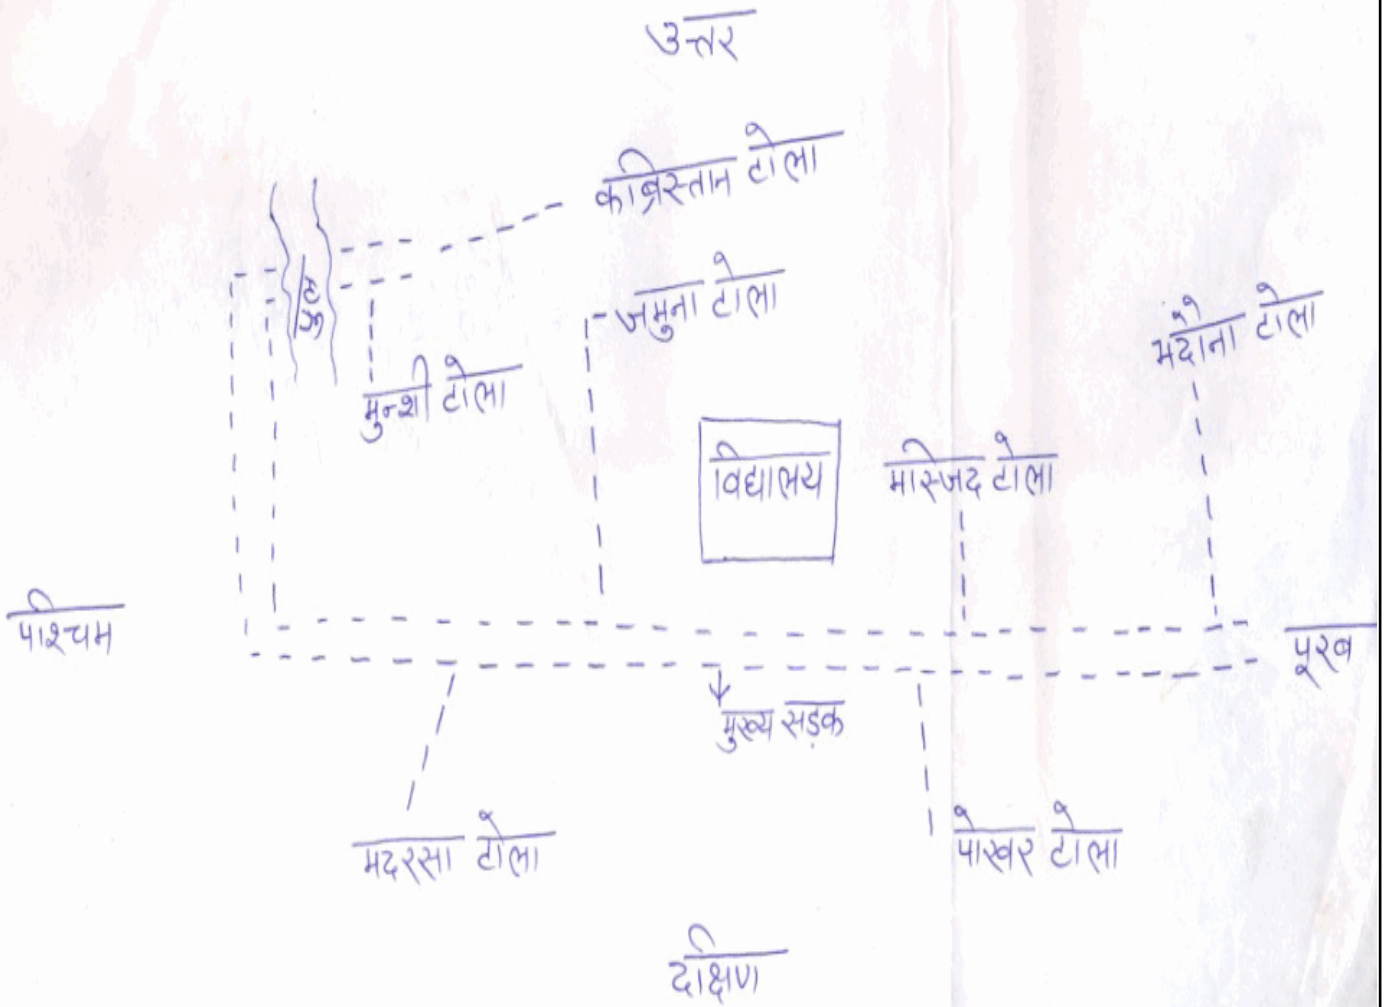 उत्तर
कब्रिस्तान टोला
जमुना टोला
मुन्शी टोला
मदौना टोला
विद्यालय
मस्जिद टोला
पश्चिम
पूरब
मुख्य सड़क
मदरसा टोला
पोखर टोला
दक्षिण